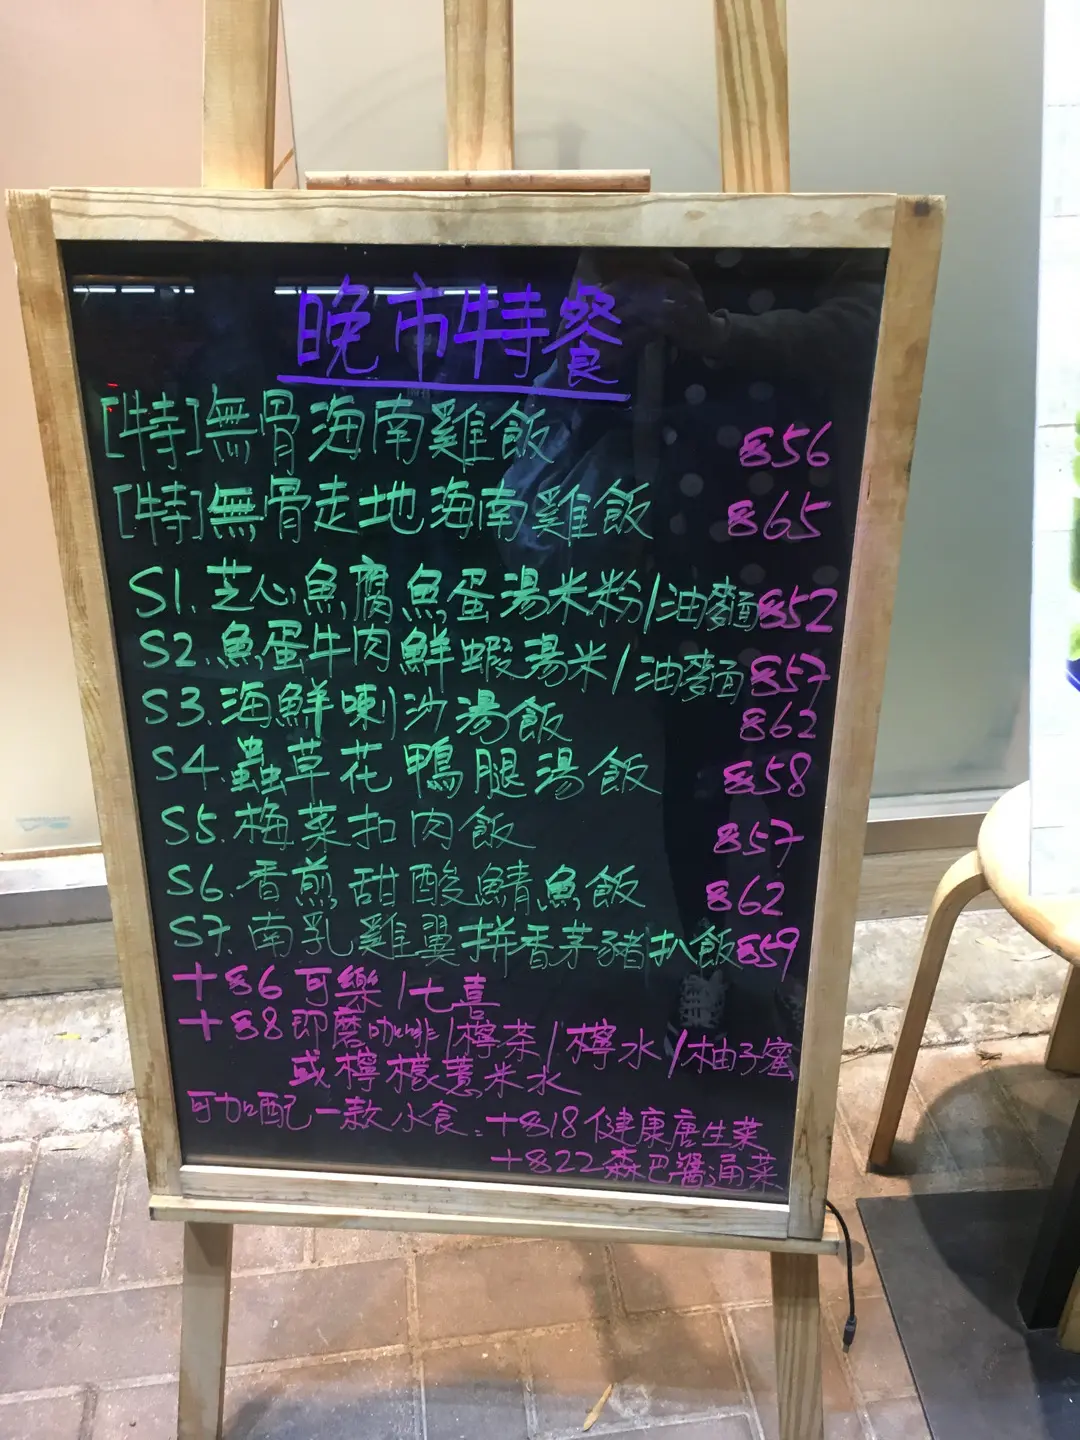 晚市特餐
[特]無骨海南雞飯 $56
[特]無骨走地海南雞飯 $65
S1. 芝心魚腐魚蛋湯米粉/油麵 $52
S2. 魚蛋牛肉鮮蝦湯米/油麵 $57
S3. 海鮮喇沙湯飯 $62
S4. 蟲草花鴨腿湯飯 $58
S5. 梅菜扣肉飯 $57
S6. 香煎甜酸鯖魚飯 $62
S7. 南乳雞翼拼香茅豬扒飯 $59
+$6 可樂/七喜
+$8 即磨咖啡/檸茶/檸水/柚子蜜
或檸檬薏米水
可加配一款小食: +$18 健康唐生菜
+$22 森巴醬涌菜